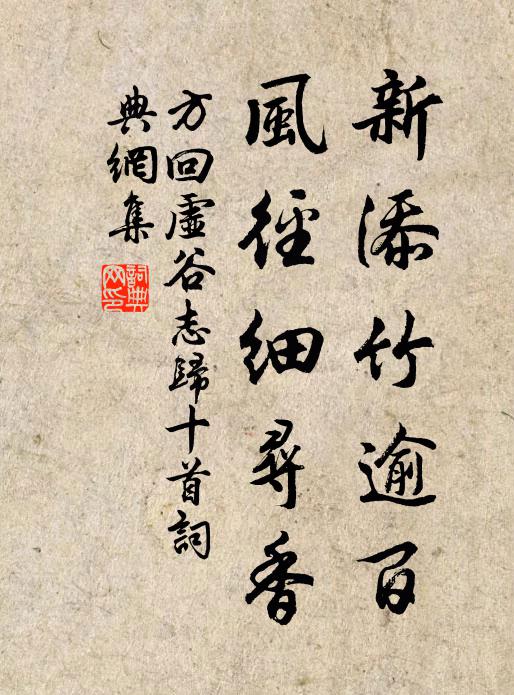 新添竹逾百
風徑細尋香
方回虛谷志歸十首詞
典網集
詞典網印